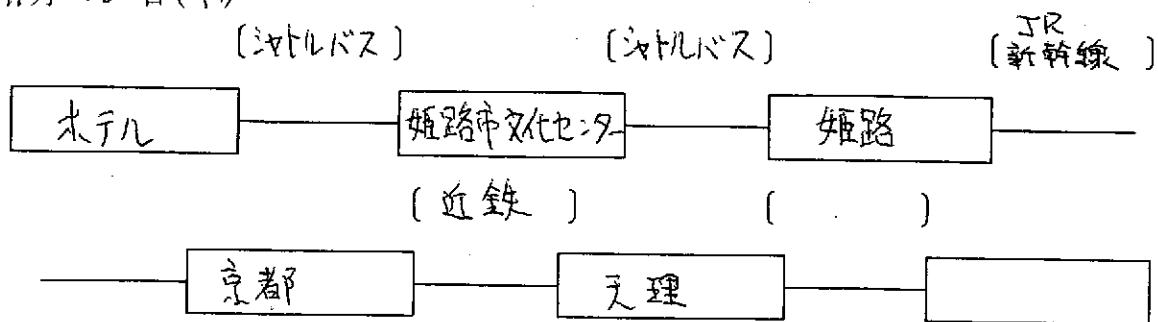 〔シャトルバス〕 〔シャトルバス〕 〔JR新幹線〕
ホテル 姫路市文化センター 姫路
〔近鉄〕 〔 〕
京都 天理